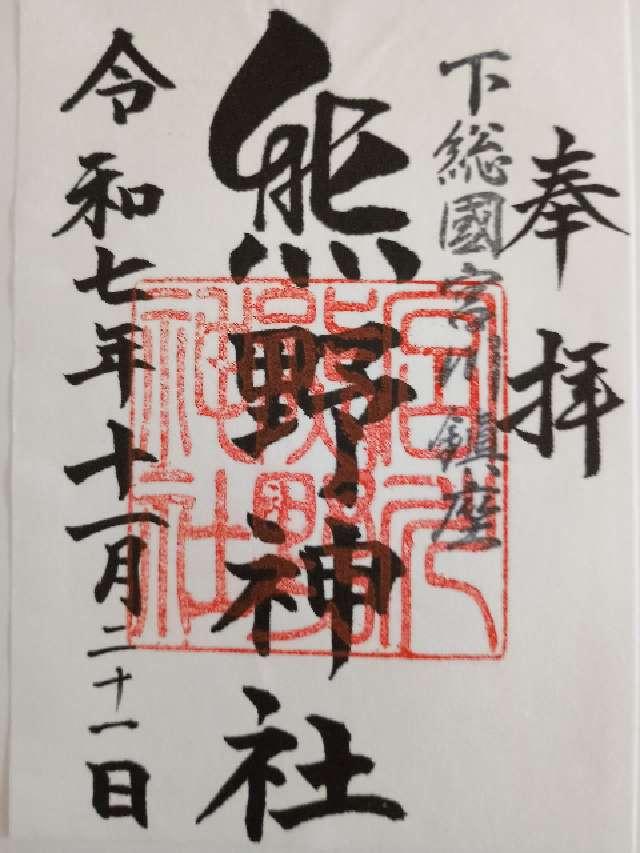 奉拝
下総國宮川鎮座
熊野神社
令和七年十一月二十一日